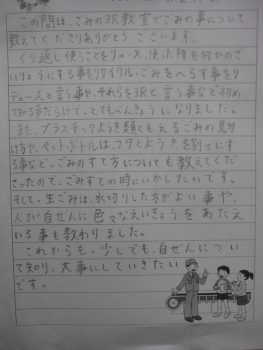 この間は、ごみの3R教室でごみの事について
教えてくださりありがとうございます。
くり返し使うことをリユース、使った物を何かのざ
いりょうにする事をリサイクル、ごみをへらす事をリ
デュースと言う事や、それらを3Rと言う事など初め
て知る事だらけで、とてもべんきょうになりました。
また、プラスチックようき類ともえるごみの見分
け方や、ペットボトルは、フタとようきを別々にす
る事など、ごみのすて方についても教えてくだ
さったので、ごみすての時にいかしたいです。
そして、生ごみは、水切りした方がよい事や、
人が自ぜんに色々なえいきょうをあたえ
いる事も教わりました。
これからも、少しでも、自ぜんについ
て知り、大事にしていきたい
です。